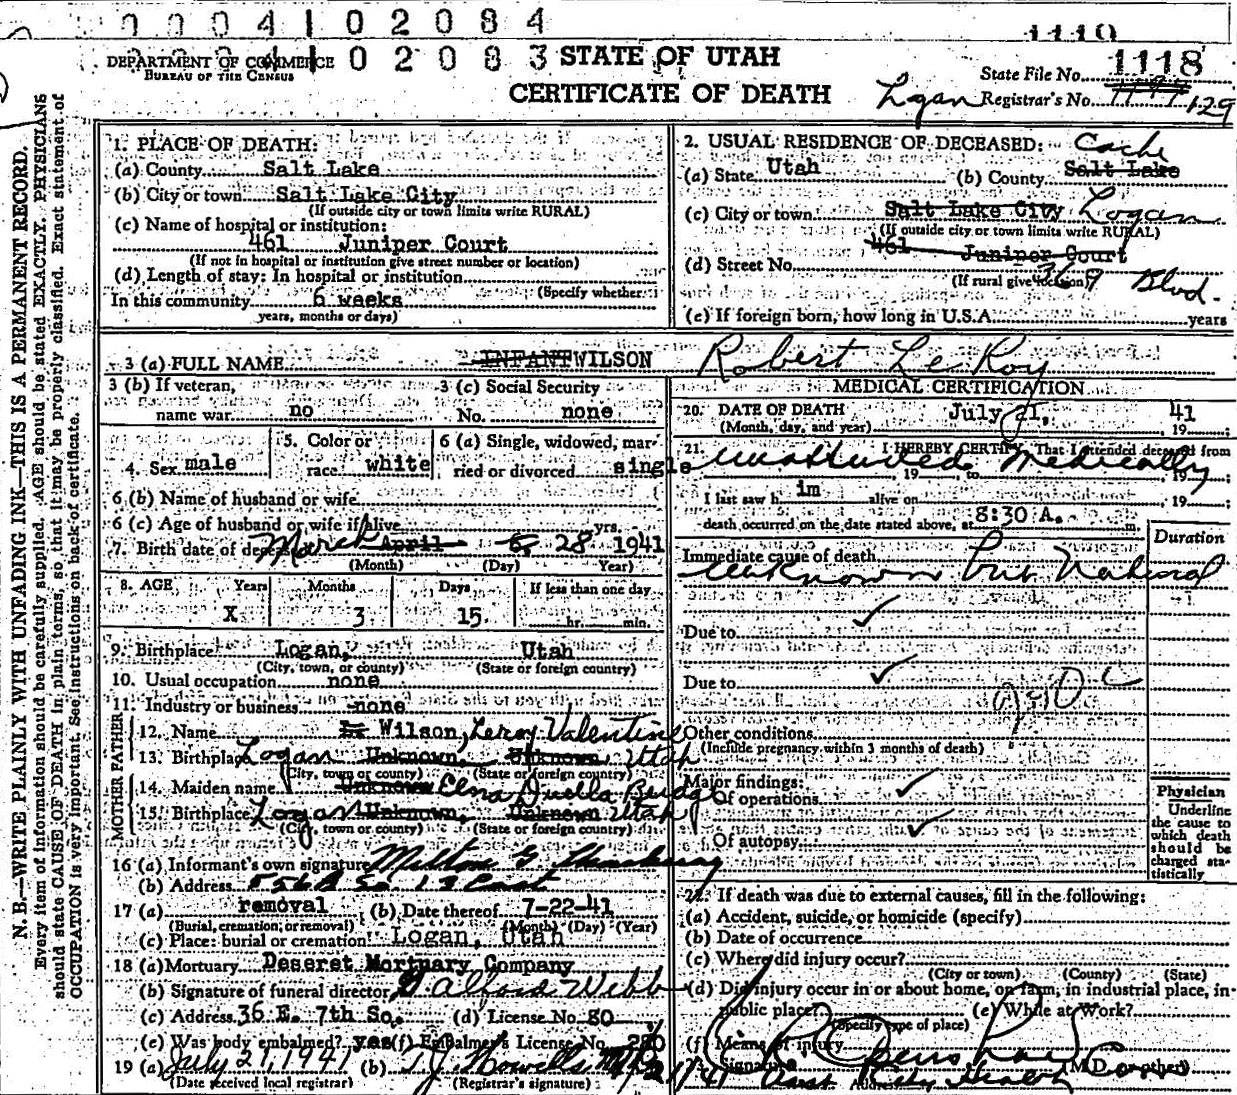 00041 02084
1110
DEPARTMENT OF COMMERCE 0 2 0 8 3 STATE OF UTAH
BUREAU OF THE CENSUS
CERTIFICATE OF DEATH
State File No. 1118
Logan Registrar's No. 129
N. B.—WRITE PLAINLY WITH UNFADING INK—THIS IS A PERMANENT RECORD.
Every item of information should be carefully supplied. AGE should be stated EXACTLY. PHYSICIANS
should state CAUSE OF DEATH in plain terms, so that it may be properly classified. Exact statement of
OCCUPATION is very important. See instructions on back of certificate.
1. PLACE OF DEATH:
(a) County Salt Lake
(b) City or town Salt Lake City
(If outside city or town limits write RURAL)
(c) Name of hospital or institution:
461 Juniper Court
(If not in hospital or institution give street number or location)
(d) Length of stay: In hospital or institution
(Specify whether
In this community 6 weeks
years, months or days)
2. USUAL RESIDENCE OF DECEASED: Cache
(a) State Utah (b) County Salt Lake
(c) City or town Salt Lake City Logan
(If outside city or town limits write RURAL)
461 Juniper Court
(d) Street No.
(If rural give location) 369 Blvd.
(e) If foreign born, how long in U.S.A. years
3 (a) FULL NAME INFANT WILSON Robert Le Roy
3 (b) If veteran,
name war no
3 (c) Social Security
No. none
4. Sex male
5. Color or
race white
6 (a) Single, widowed, mar-
ried or divorced single
6 (b) Name of husband or wife
6 (c) Age of husband or wife if alive yrs.
7. Birth date of deceased March April 6, 28 1941
(Month) (Day) Year)
8. AGE Years Months Days If less than one day
X 3 15 hr. min.
9. Birthplace Logan, Utah
(City, town, or county) (State or foreign country)
10. Usual occupation none
11. Industry or business none
FATHER
12. Name Wilson, Leroy Valentine
13. Birthplace Logan Unknown, Unknown, Utah
(City, town or county) (State or foreign country)
MOTHER
14. Maiden name Unknown Elna Duella Budge
15. Birthplace Logan Unknown, Unknown Utah
(City, town or county) (State or foreign country)
16 (a) Informant's own signature Milton G
(b) Address 556 So. 13 East
17 (a) removal (b) Date thereof 7-22-41
(Burial, cremation, or removal) (Month) (Day) (Year)
(c) Place: burial or cremation Logan, Utah
18 (a) Mortuary Deseret Mortuary Company
(b) Signature of funeral director, D Alford Webb
(c) Address 36 E. 7th So. (d) License No. 80
(e) Was body embalmed? yes (f) Embalmer's License No.
19 (a) July 21, 1941 (b) T. J. Howells
(Date received local registrar) (Registrar's signature)
MEDICAL CERTIFICATION
20. DATE OF DEATH July 21, 1941
(Month, day, and year)
21. I HEREBY CERTIFY, That I attended deceased from
unattended Medically
, 19 , to , 19 ;
I last saw h im alive on , 19 ;
death occurred on the date stated above, at 8:30 A. m.
Duration
Immediate cause of death
unknown but Natural
Due to
Due to
Other conditions
(Include pregnancy within 3 months of death)
Major findings:
Of operations
Of autopsy
Physician
Underline
the cause to
which death
should be
charged sta-
tistically
22. If death was due to external causes, fill in the following:
(a) Accident, suicide, or homicide (specify)
(b) Date of occurrence
(c) Where did injury occur?
(City or town) (County) (State)
(d) Did injury occur in or about home, on farm, in industrial place, in
public place? (e) While at Work?
(Specify type of place)
(f) Means of injury
Signature (M.D. or other)
Address City Health